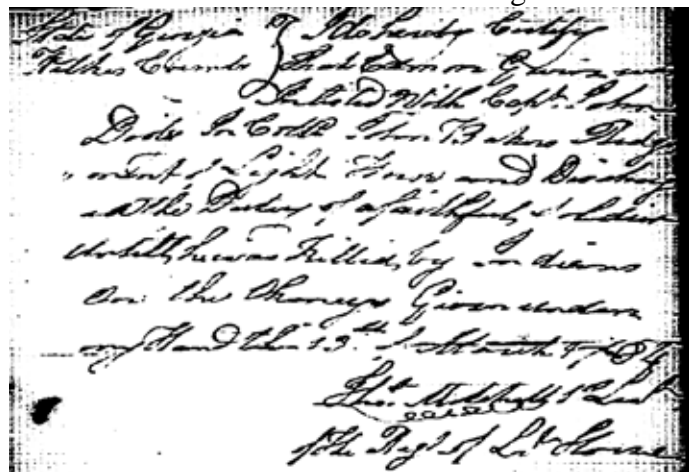 State of Georgia } I do hereby Certify
Wilkes County } that Gwinn was
Inlisted With Capt. John
Dods In Colln John Bakers Redg
ment of Light Horse and Discharg
all the Duties of a faithful, Soldier
Untill he was Killed, by Indians
On the Given undar
my Hand this 13th of March 1784
Mitchell Leut
of the Regt of Lt Horse